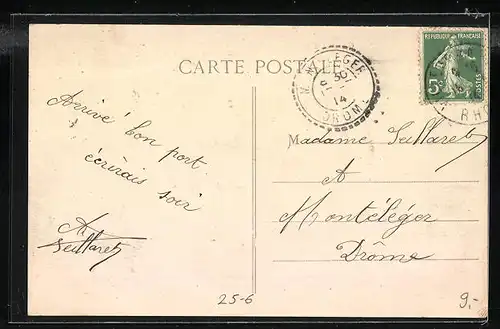 CARTE POSTALE
REPUBLIQUE FRANÇAISE
5c
POSTES
DROME
14
Arrivé bon port
écrirais soir
A. Seillaret
Madame Seillaret
A
Montéléger
Drôme
25-6
9.-